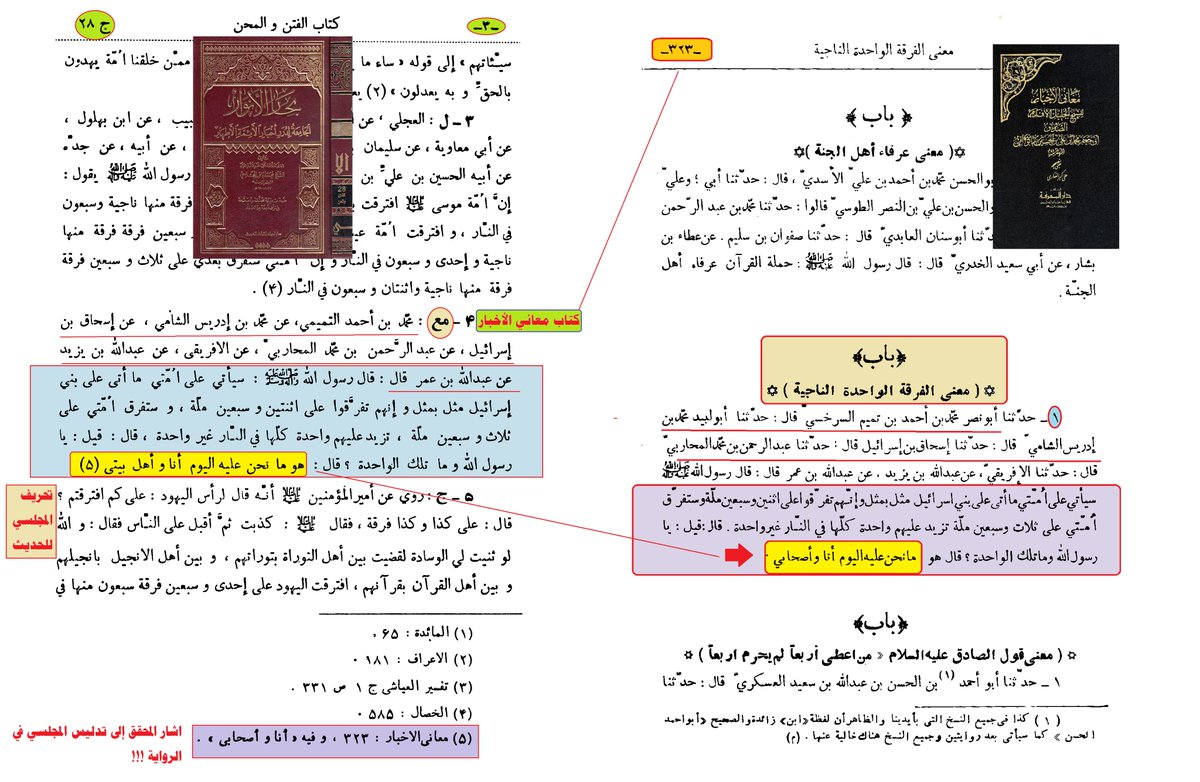 معنى الفرقة الواحدة الناجية
ـ٣٢٣ـ
معاني الأخبار
﴿ باب ﴾
۞( معنى عرفاء أهل الجنة )۞
بوالحسن محمّد بن أحمد بن عليّ الأسديّ ، قال : حدّثنا أبي ؛ وعليّ
والحسن بن عليّ بن النصر الطوسيّ قالوا : حدّثنا محمّد بن عبد الرّحمن
دّثنا أبوسنان العابديّ قال : حدّثنا صفوان بن سليم . عن عطاء بن
بشار ، عن أبي سعيد الخدريّ قال : قال رسول الله ﷺ : حملة القرآن عرفاء أهل
الجنّة .
﴿باب﴾
۞ ( معنى الفرقة الواحدة الناجية ) ۞
١ ـ حدّثنا أبونصر محمّد بن أحمد بن تميم السرخسيّ قال : حدّثنا أبولبيد محمّد بن
إدريس الشاميّ قال : حدّثنا إسحاق بن إسرائيل قال : حدّثنا عبدالرحمن بن محمّد المحاربيّ
قال : حدّثنا الإفريقيّ ، عن عبدالله بن يزيد ، عن عبدالله بن عمر قال : قال رسول الله ﷺ
سيأتي على اُمّتي ما أتى على بني إسرائيل مثل بمثل و إنّهم تفرّقوا على اثنين وسبعين ملّة وستفرّق
اُمّتي على ثلاث وسبعين ملّة تزيد عليهم واحدة كلّها في النار غير واحدة . قال : قيل : يا
رسول الله وما تلك الواحدة ؟ قال هو ما نحن عليه اليوم أنا وأصحابي .
﴿باب﴾
۞ ( معنى قول الصادق عليه السلام « من اعطى أربعاً لم يحرم اربعاً ) ۞
١ ـ حدّثنا أبو أحمد (١) بن الحسن بن عبدالله بن سعيد العسكريّ قال : حدّثنا
( ١ ) كذا في جميع النسخ التي بأيدينا والظاهر أن لفظة «ابن» زائدة والصحيح «أبو احمد
الحسن » كما سيأتى بعد روايتين وجميع النسخ هناك خالية عنها . (م)
ج ٢٨
كتاب الفتن و المحن
ـ٣ـ
بحار الأنوار
الجامعة لدرر أخبار الأئمة الأطهار
سيّئاتهم » إلى قوله «ساء ما
ممّن خلقنا اُمّة يهدون
بالحقّ و به يعدلون » (٢) يع
٣ ـ ل : العجلي ، عن
بيب ، عن ابن بهلول ،
عن أبي معاوية ، عن سليمان
، عن أبيه ، عن جدّه
عن أبيه الحسين بن عليّ بن
رسول الله ﷺ يقول :
إنّ اُمّة موسى ﷺ افترقت ب
فرقة منها ناجية وسبعون
في النّار ، و افترقت اُمّة عي
سبعين فرقة فرقة منها
ناجية و إحدى و سبعون في النّار و إنّ اُمّتي ستفرق بعدي على ثلاث و سبعين فرقة
فرقة منها ناجية واثنتان و سبعون في النّار (۴) .
كتاب معاني الأخبار
۴ ـ مع : محمّد بن أحمد التميمي، عن محمّد بن إدريس الشامي ، عن إسحاق بن
إسرائيل ، عن عبد الرّحمن بن محمّد المحاربيّ ، عن الافريقى ، عن عبدالله بن يزيد
عن عبدالله بن عمر قال : قال رسول الله ﷺ : سيأتي على اُمّتي ما أتى على بني
إسرائيل مثل بمثل و إنهم تفرّقوا على اثنتين و سبعين ملّة ، و ستفرق اُمّتي على
ثلاث و سبعين ملّة ، تزيد عليهم واحدة كلّها في النّار غير واحدة ، قال : قيل : يا
رسول الله و ما تلك الواحدة ؟ قال : هو ما نحن عليه اليوم أنا و أهل بيتى (۵)
تحريف
المجلسي
للحديث
۵ ـ ج : روي عن أميرالمؤمنين ﷺ أنّه قال لرأس اليهود : على كم افترقتم ؟
قال : على كذا و كذا فرقة ، فقال ﷺ : كذبت ثمّ أقبل على النّاس فقال : و الله
لو ثنيت لي الوسادة لقضيت بين أهل التوراة بتوراتهم ، و بين أهل الانجيل بانجيلهم
و بين أهل القرآن بقرآنهم ، افترقت اليهود على إحدى و سبعين فرقة سبعون منها في
(١) المائدة : ۶۵ .
(٢) الاعراف : ١٨١ .
(٣) تفسير العياشى ج ١ ص ٣٣١ .
(۴) الخصال : ۵٨۵ .
(۵) معانى الاخبار : ٣٢٣ ، و فيه «أنا و أصحابى» .
اشار المحقق إلى تدليس المجلسي في
الرواية !!!